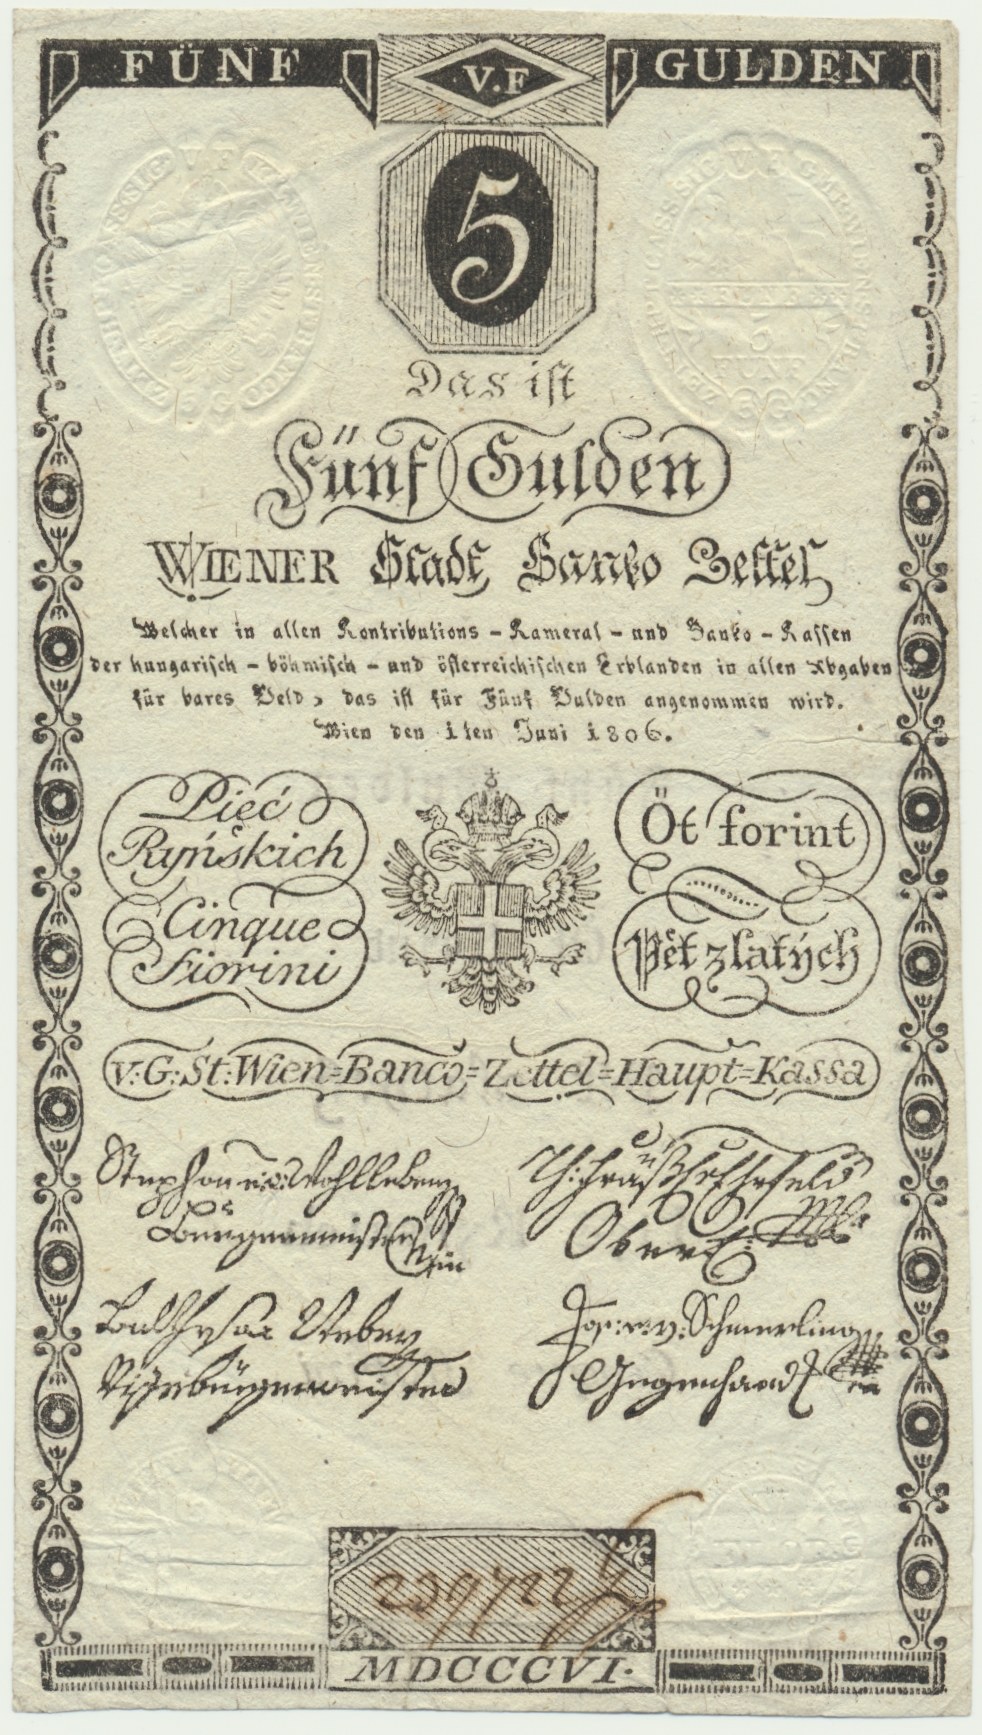 FÜNF V.F GULDEN
5
Das ist
Fünf Gulden
WIENER Stadt Banko Zettel
Welcher in allen Kontributions - Kameral - und Banko - Kassen
der hungarisch - böhmisch - und österreichischen Erblanden in allen Abgaben
für bares Geld, das ist für Fünf Gulden angenommen wird.
Wien den 1ten Juni 1806.
Pięć
Ryńskich
Cinque
Fiorini
Öt forint
Pět zlatých
V:G:St:Wien=Banco=Zettel=Haupt=Kassa
Stephan v: Wohlleben
Burgermeister
Oberl:
Vizebürgermeister
Jos: v: Schmerling
Gegenhandl
FÜNF
5
FÜNF
239722
MDCCCVI.